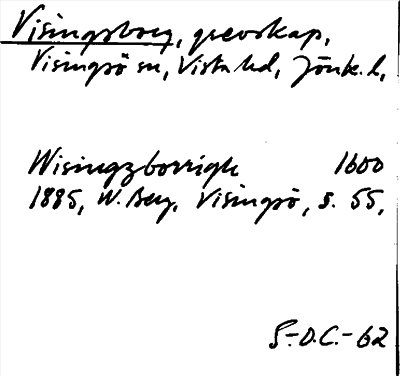 Visingsborg, grevskap,
Visingsö sn, Vista hd, Jönk. l,
Wisingzborrigh 1600
1885, W. Berg, Visingsö, s. 55,
S.-O.C.-62